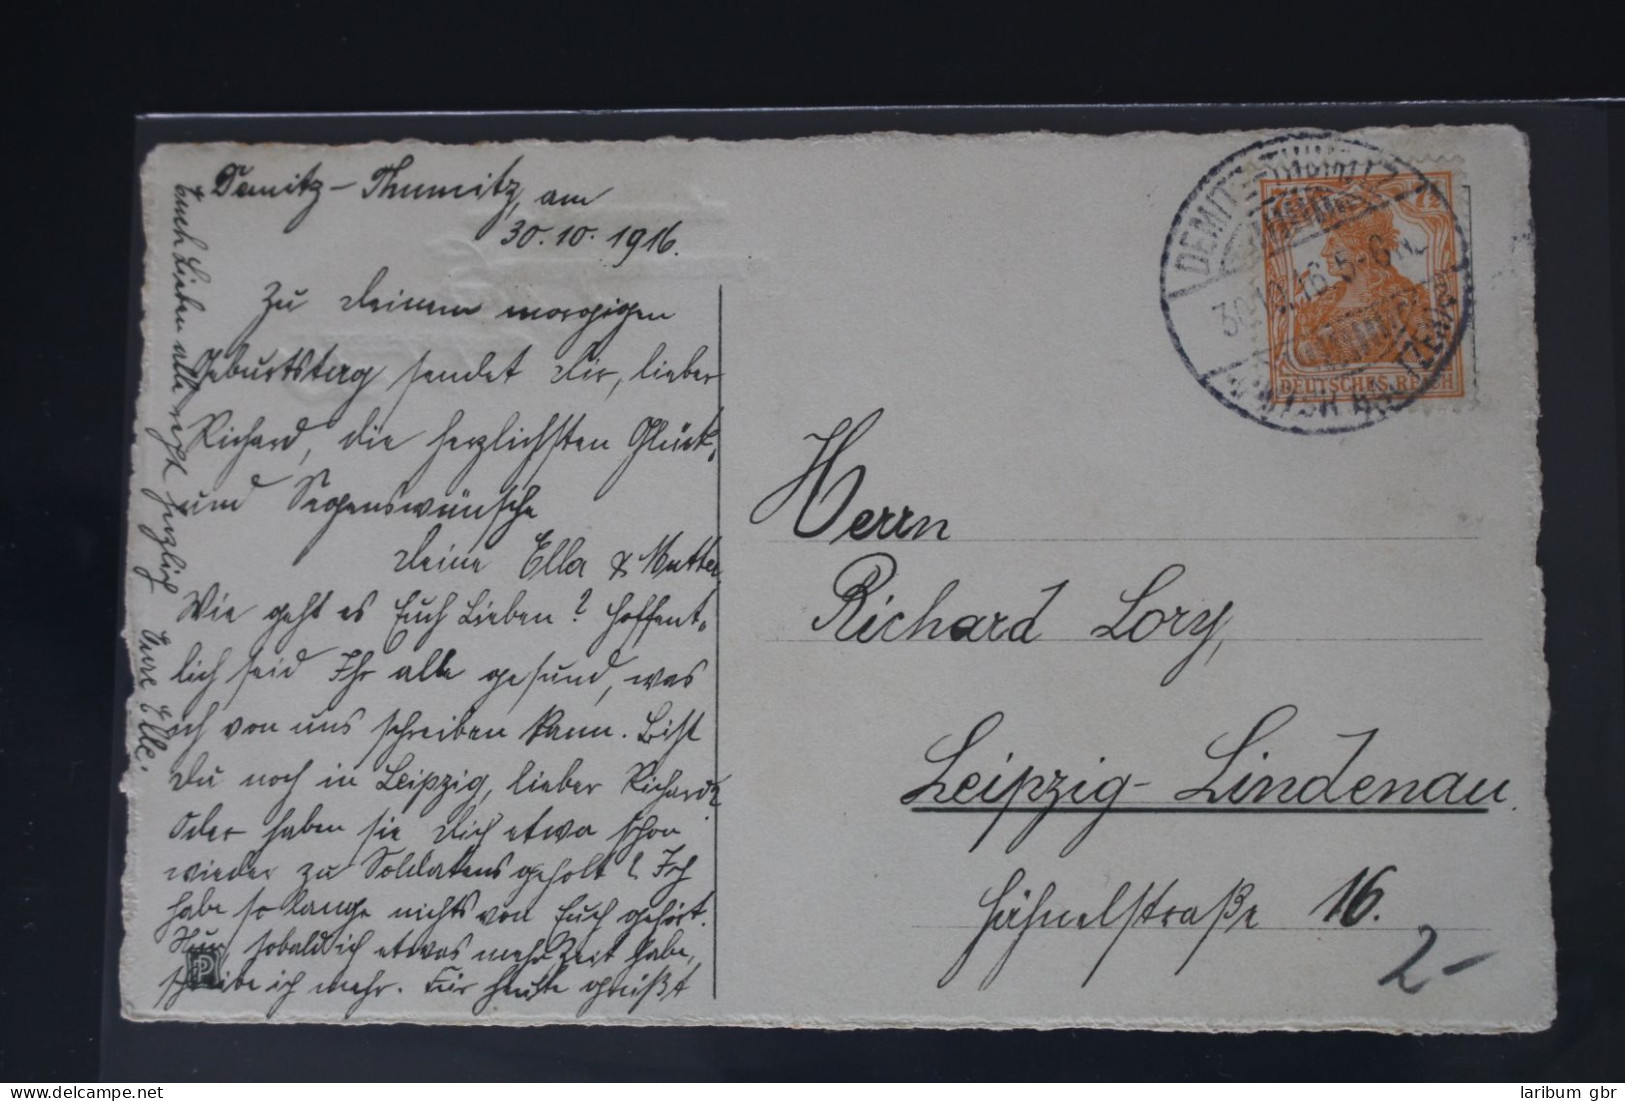 Demitz-Thumitz, am
30.10.1916.
Zu Deinem morgigen
Geburtstag sendet Dir, lieber
Richard, die herzlichsten Glück-
und Segenswünsche
Deine Ella & Mutter
Wie geht es Euch Lieben? Hoffent-
lich seid Ihr alle gesund, was
ich von uns schreiben kann. Bist
Du noch in Leipzig, lieber Richard?
Oder haben sie Dich etwa schon
wieder zu Soldatens geholt? Ich
habe so lange nichts von Euch gehört.
Nur, sobald ich etwas mehr Zeit habe,
schreibe ich mehr. Für heute grüßt
Euch Lieben alle recht herzlich
Eure Elle.
P
DEMITZ-THUMITZ
30.10.16.5-6N.
7½
DEUTSCHES REICH
Herrn
Richard Lory,
Leipzig-Lindenau.
Hähnelstraße 16.
2-
Hosted on Delcampe.net
laribum gbr